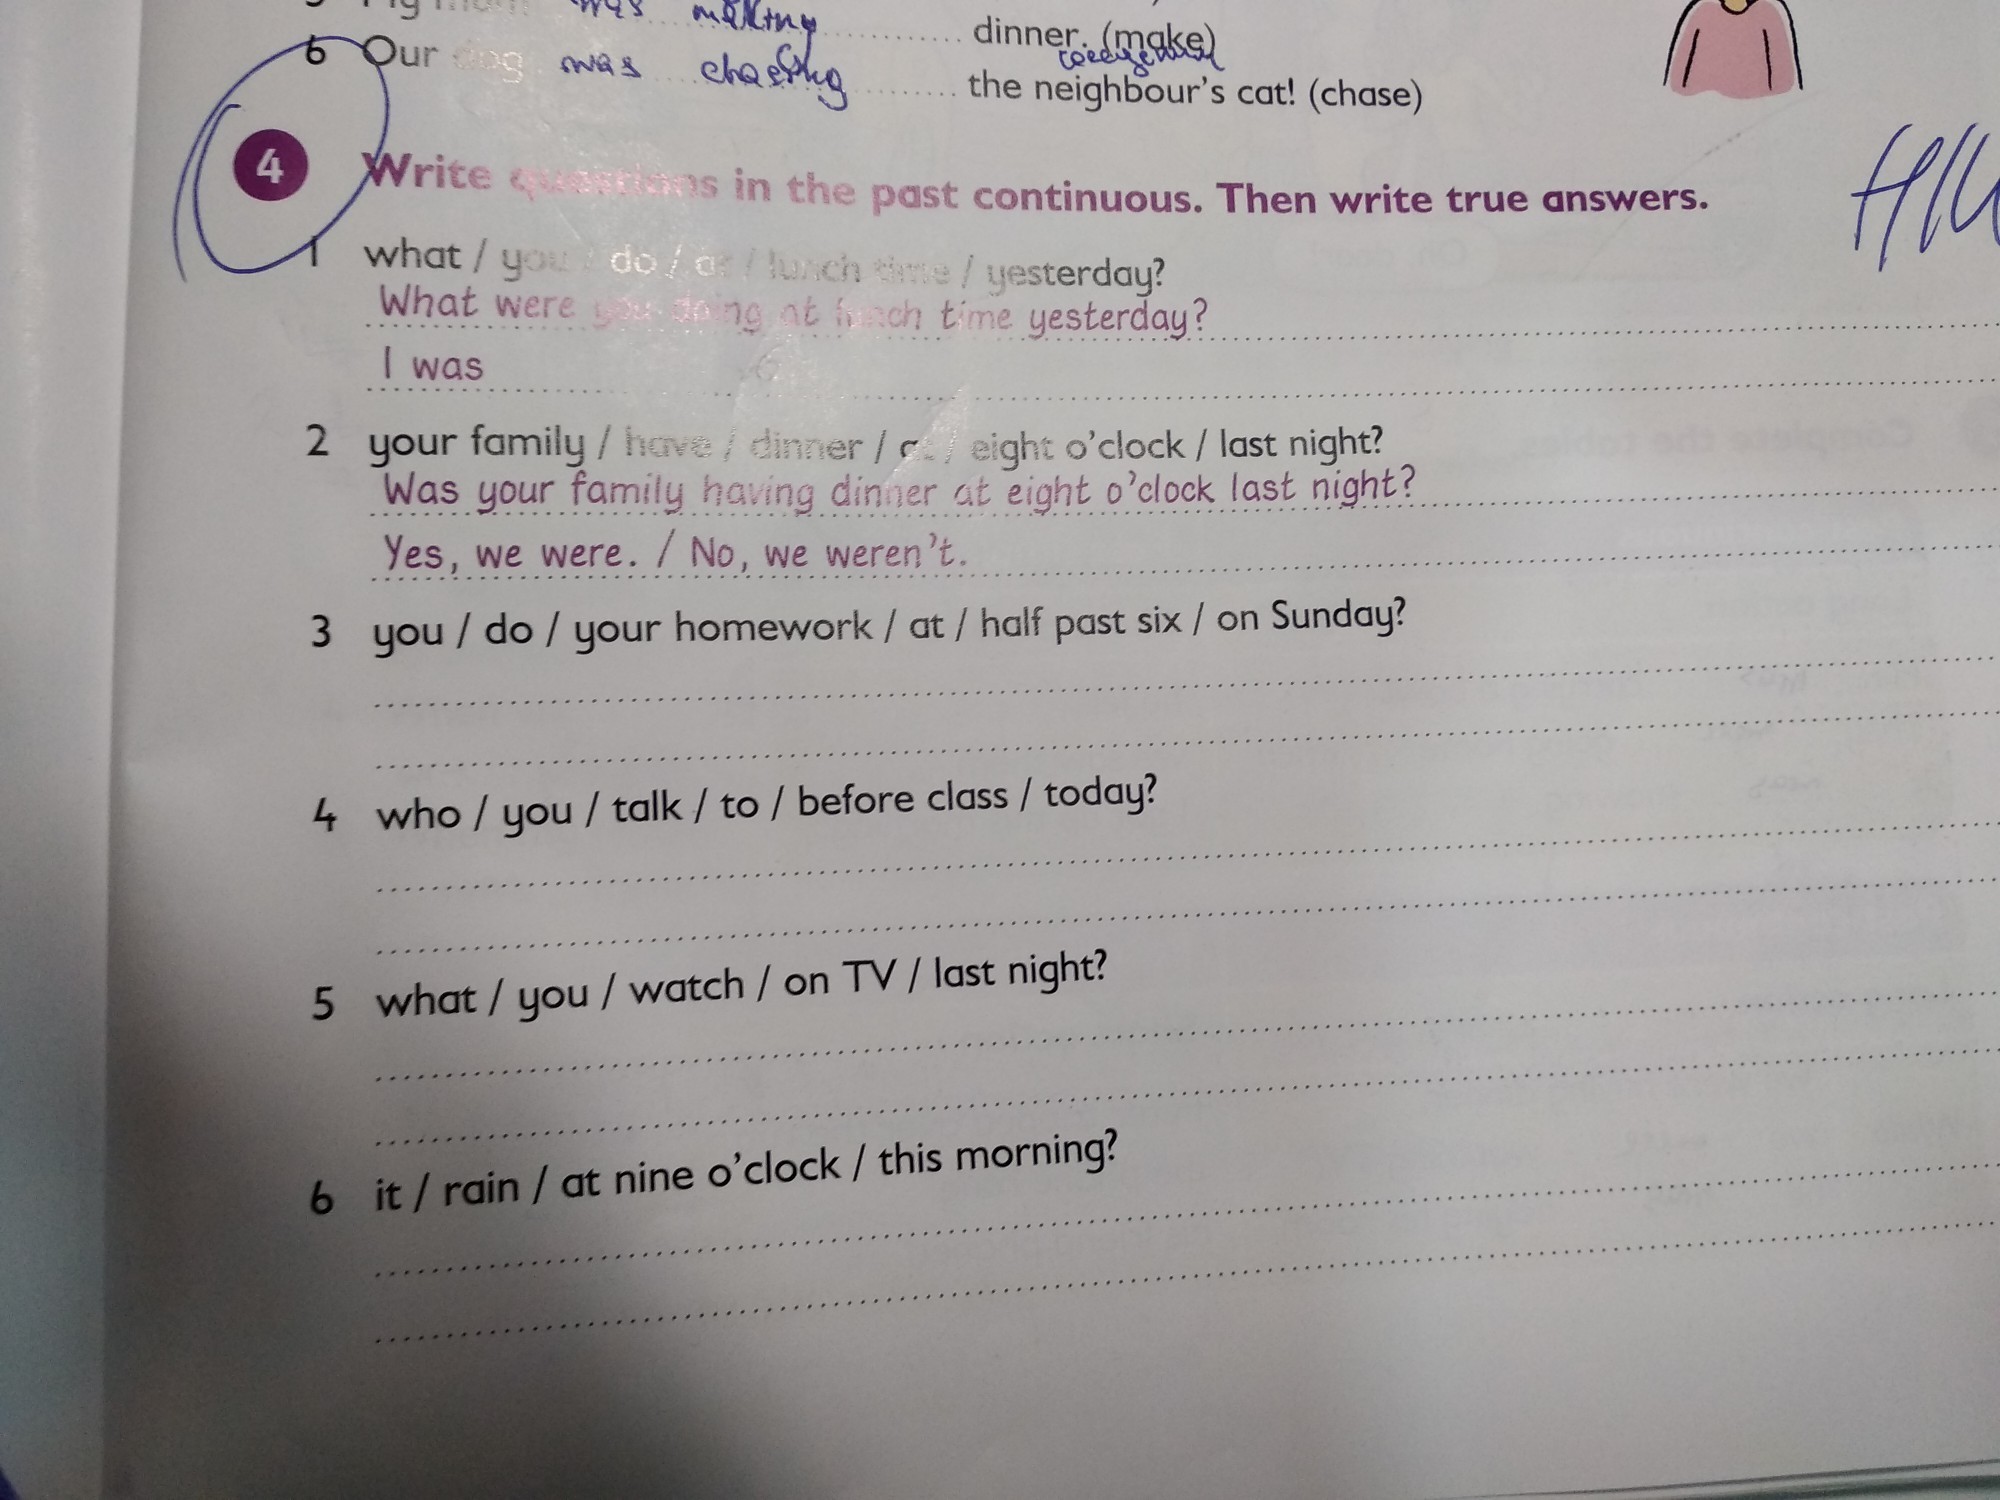 was making ............ dinner. (make)
6 Our dog was chasing ............ the neighbour's cat! (chase)
4 Write questions in the past continuous. Then write true answers.
1 what / you / do / at / lunch time / yesterday?
What were you doing at lunch time yesterday?
I was
2 your family / have / dinner / at / eight o'clock / last night?
Was your family having dinner at eight o'clock last night?
Yes, we were. / No, we weren't.
3 you / do / your homework / at / half past six / on Sunday?
4 who / you / talk / to / before class / today?
5 what / you / watch / on TV / last night?
6 it / rain / at nine o'clock / this morning?